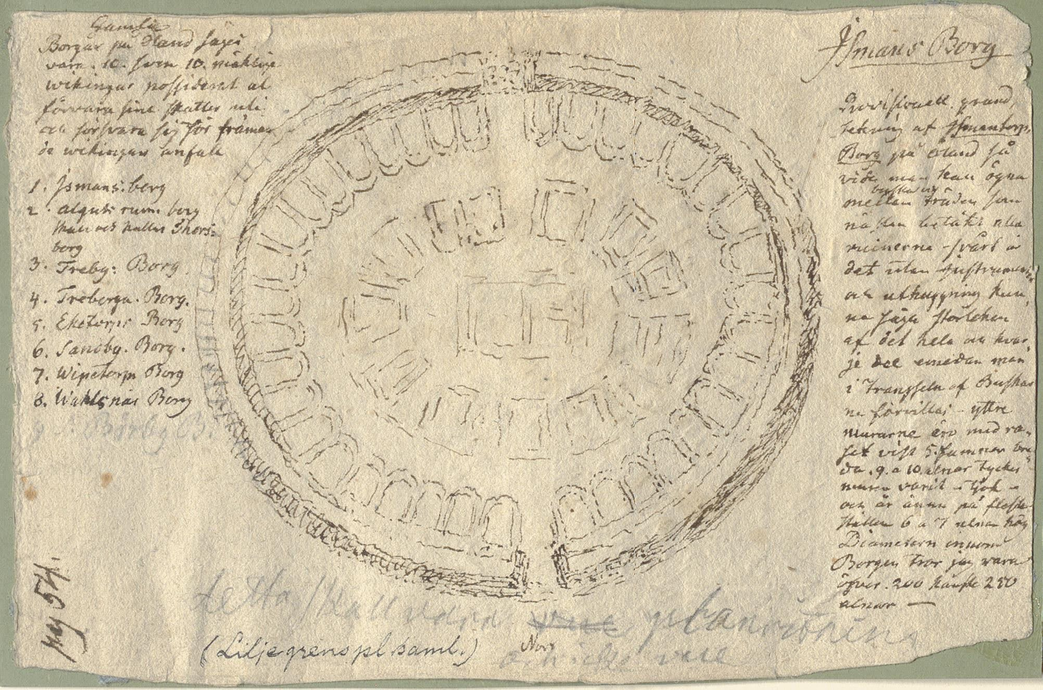 Gamla
Borgar på Öland säges
vara 10. Även 10. mäktige
wikingar possiderat at
förvara sine skatter uti
och försvara sig för främan
de wikingars anfall
1. Ismans. borg
2. algutsrum. borg
kallas Thors-
borg
3. Treby: Borg
4. Treberga. Borg.
5. Eketorps Borg
6. Sandby. Borg.
7. Wipetorp Borg
8. Wahlsnäs Borg
9
Ismans Borg
Provisionell grund
tekning af Ismantorps
Borg på Öland så
vida man kan ögna
buskar och
mellan träden som
nästan betäkt alla
ruinerne - svårt är
det utan instrument
och uthuggning kun-
na säga storleken
af det hela och hvar-
je del emedan man
i trängseln af Buskar
ne förvillas - yttre
murarne äro med ra-
set vist 5. famnar bre
da. 9. a 10. alnar tyckes
muren varit - tjok -
och är ännu på flesta
ställen 6 a 7 alnar hög
Diametern
Borgen tror jag vara
öfver. 200 kanske 250
alnar —
detta skall vara plan
(Liljegrens pl. saml.)
Norr
54.